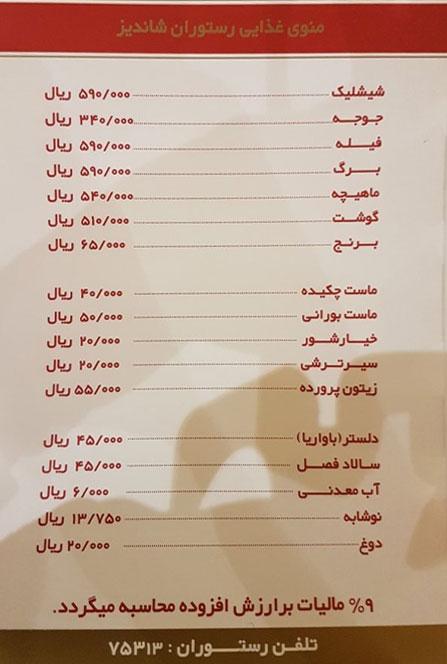 منوی غذایی رستوران شاندیز
شیشلیک ۵۹۰/۰۰۰ ریال
جوجه ۳۴۰/۰۰۰ ریال
فیله ۵۹۰/۰۰۰ ریال
برگ ۵۹۰/۰۰۰ ریال
ماهیچه ۵۴۰/۰۰۰ ریال
گوشت ۵۱۰/۰۰۰ ریال
برنج ۶۵/۰۰۰ ریال
ماست چکیده ۴۰/۰۰۰ ریال
ماست بورانی ۵۰/۰۰۰ ریال
خیارشور ۲۰/۰۰۰ ریال
سیرترشی ۲۰/۰۰۰ ریال
زیتون پرورده ۵۵/۰۰۰ ریال
دلستر(باواریا) ۴۵/۰۰۰ ریال
سالاد فصل ۴۵/۰۰۰ ریال
آب معدنی ۶/۰۰۰ ریال
نوشابه ۱۳/۷۵۰ ریال
دوغ ۲۰/۰۰۰ ریال
۹% مالیات برارزش افزوده محاسبه میگردد.
تلفن رستوران : ۷۵۳۱۳